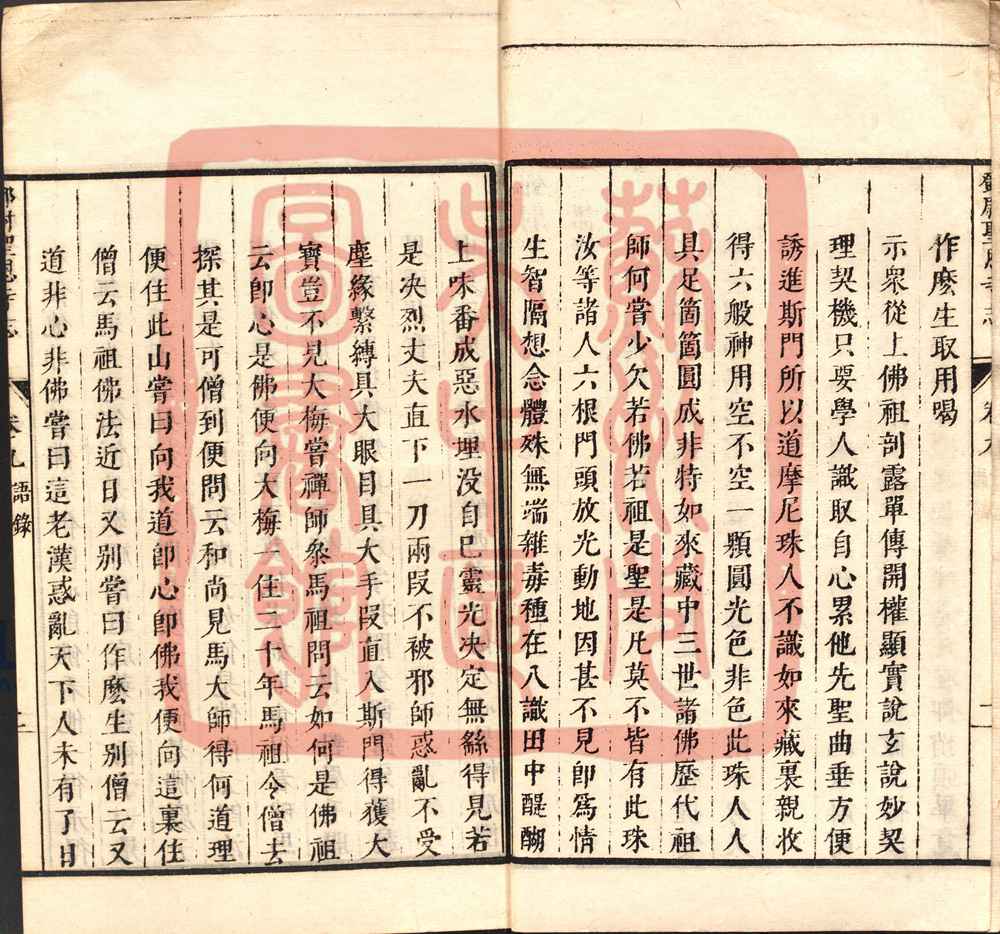 鄧尉聖恩寺志 卷九
作麽生取用喝
示衆從上佛祖剖露單傳開權顯實說玄說妙契
理契機只要學人識取自心累他先聖曲垂方便
誘進斯門所以道摩尼珠人不識如來藏裏親收
得六般神用空不空一顆圓光色非色此珠人人
具足箇箇圓成非特如來藏中三世諸佛歷代祖
師何嘗少欠若佛若祖是聖是凡莫不皆有此珠
汝等諸人六根門頭放光動地因甚不見卽爲情
生智隔想念體殊無端雜毒種在八識田中醍醐
上味番成惡水理没自己靈光决定無緣得見若
是决烈丈夫直下一刀兩叚不被邪師惑亂不受
塵緣繫縛具大眼目具大手叚直入斯門得獲大
寶豈不見大梅嘗禪師叅馬祖問云如何是佛祖
云卽心是佛便向大梅一住三十年馬祖令僧去
探其是可僧到便問云和尚見馬大師得何道理
便住此山嘗曰向我道卽心卽佛我便向這裏住
僧云馬祖佛法近日又别嘗曰作麽生别僧云又
道非心非佛嘗曰這老漢惑亂天下人未有了日
鄧尉聖恩寺志 卷九 語錄
蘇州市
吳中區
圖書館